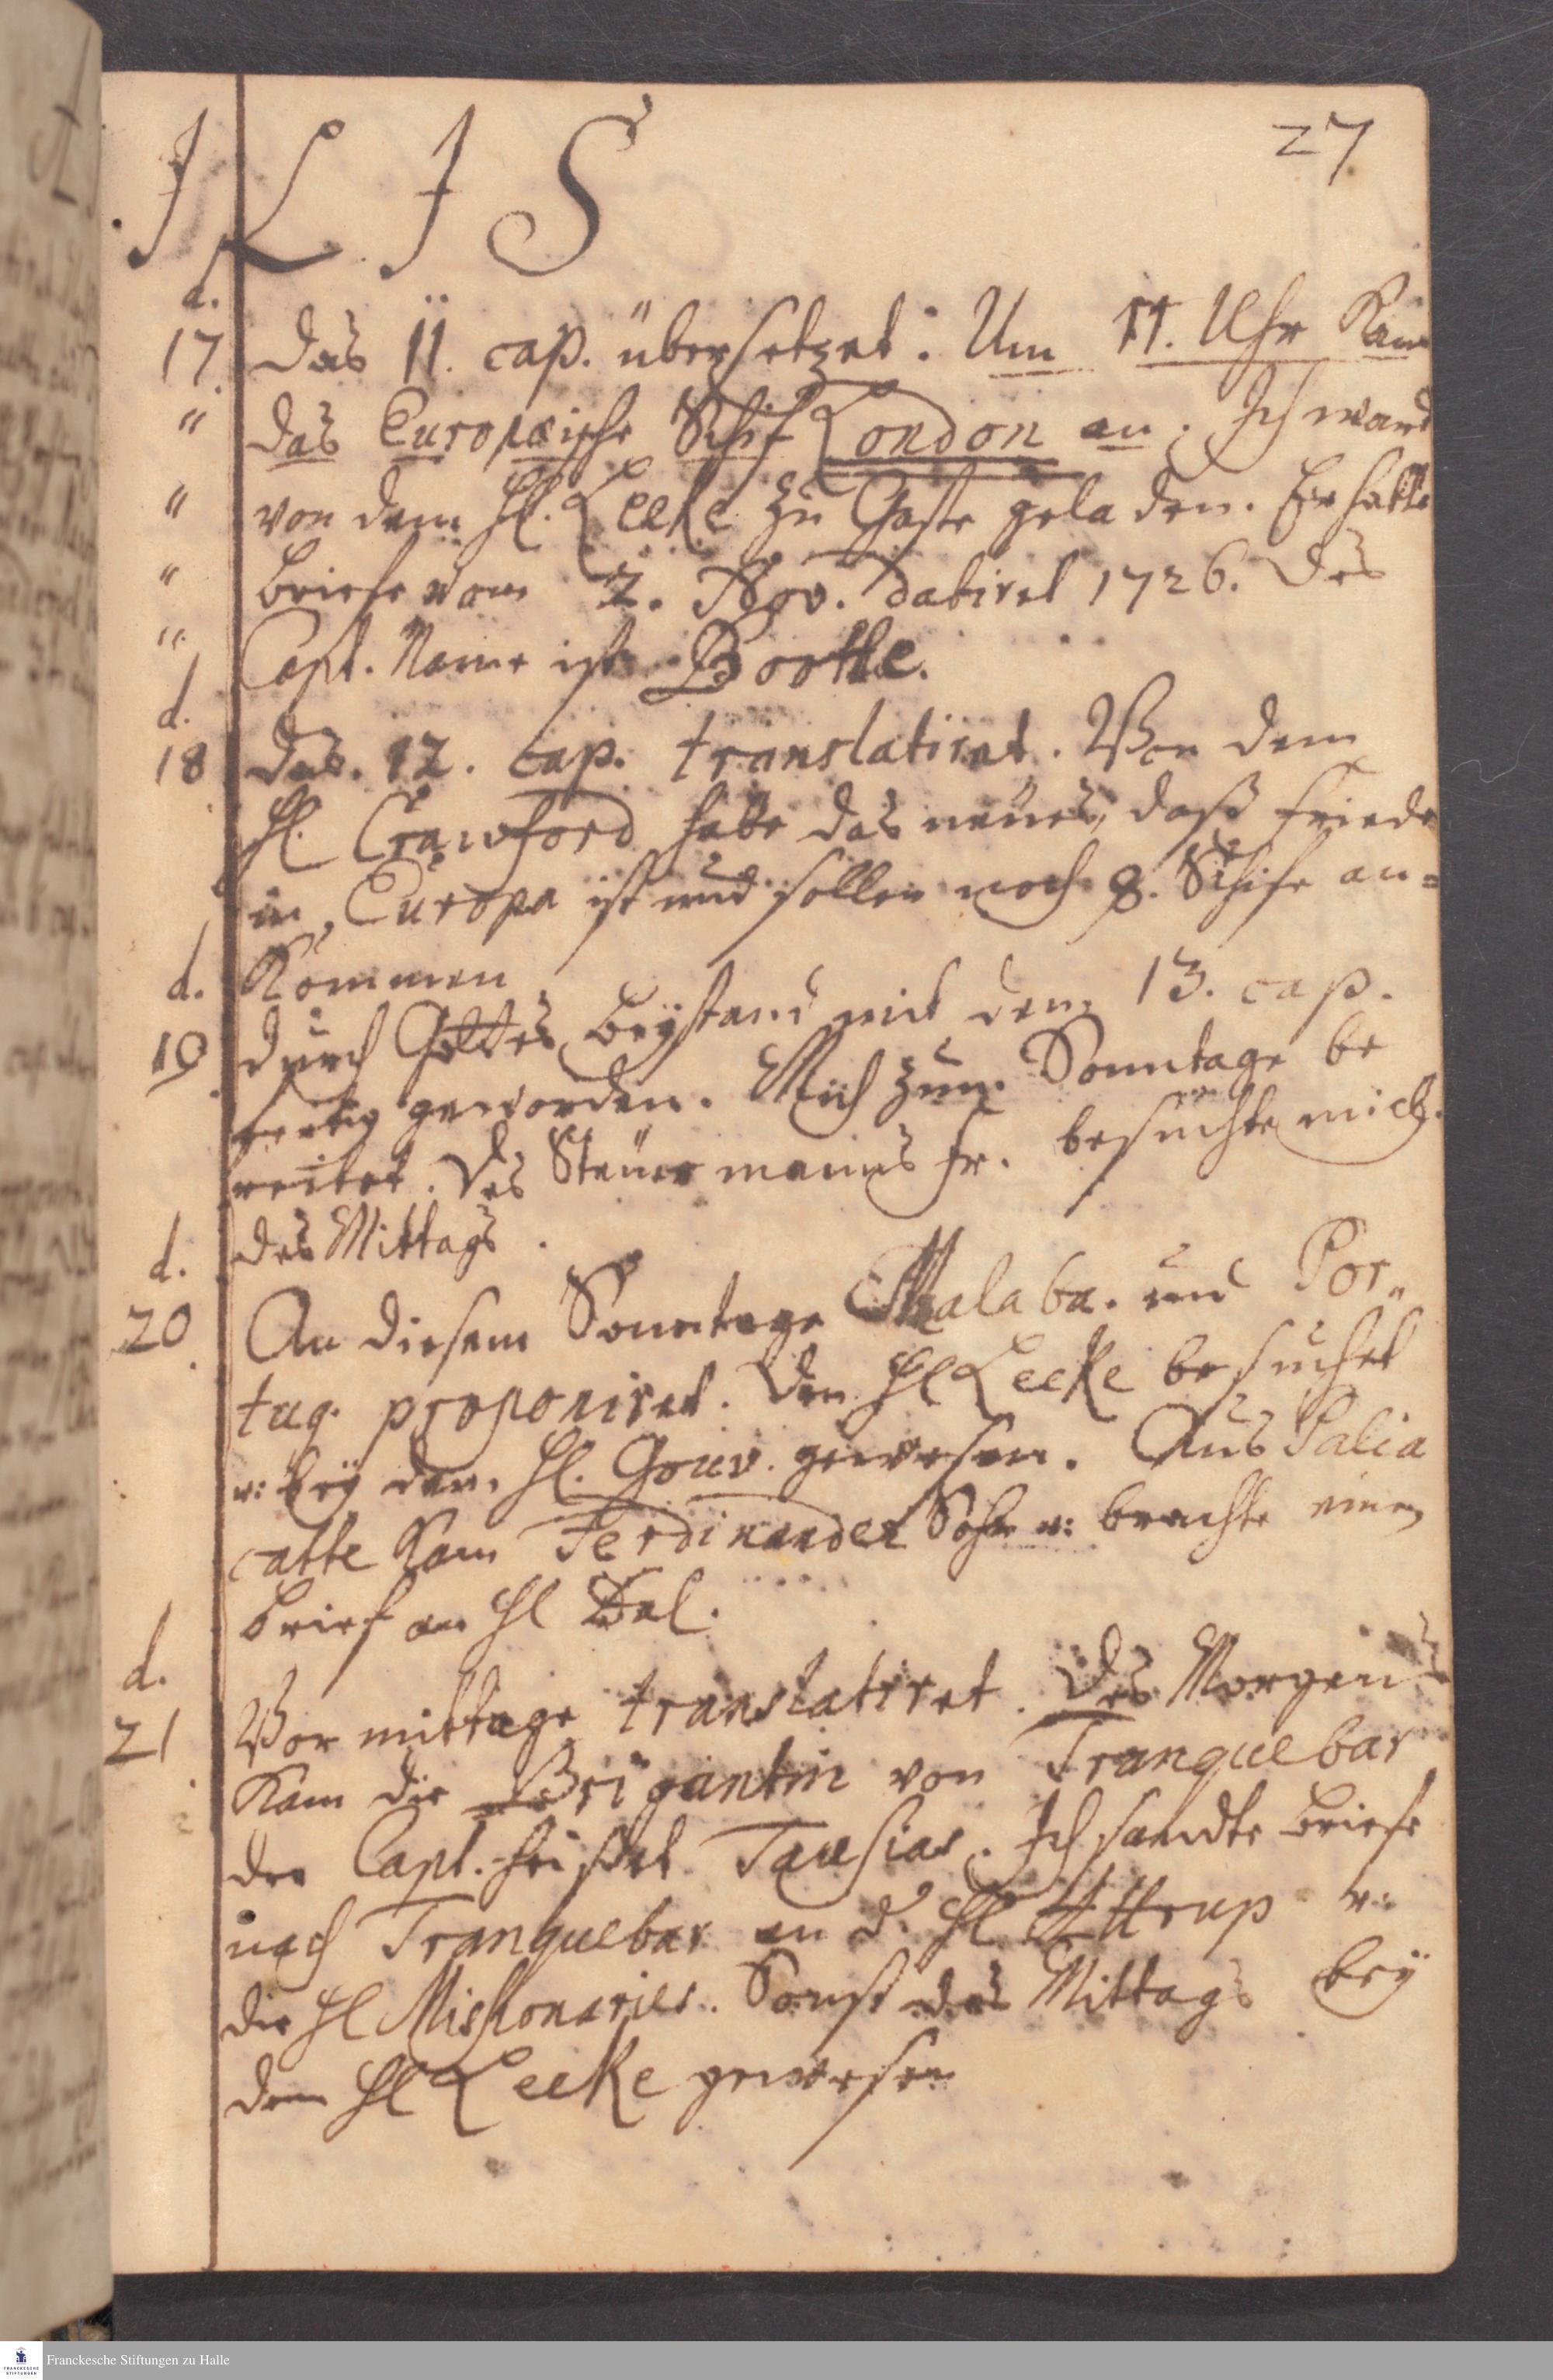 27
I L I S
d.
17. Das 11. cap. übersetzet. Um 11. Uhr Kam
" das Europæische Schif London an. Ich ward
" von dem Hl. Leeke zu Gaste geladen. Er hatte
" briefe vom 2. Nov. datiret 1726. Des
" Capt. Name ist Bootle.
d.
18 das. 12. cap. translatiret. Von dem
Hl. Crawford habe das neues, daß friede
in Europa ist und sollen noch 8. Schife an=
d. Kommen
19. durch Gottes beystand mit dem 13. cap.
fertig geworden. Mich zum Sonntage be
reitet. Des Steuermanns fr. besuchte mich
d. des Mittags.
20. An diesem Sonntage Malaba. und Por„
tug. proponiret. Den Hl Leeke besuchet
u: bey dem Hl. Gouv. gewesen. Aus Palia
catte Kam Ferdinandez Sohn u: brachte einen
brief an Hl Dal.
d.
21. Vormittage translatiret. Des Morgens
Kam die Brigantin von Tranquebar
der Capt. heißet Tausias. Ich sandte briefe
nach Tranquebar an d. Hl Attrup u:
die Hl Missionaries. Sonst des Mittags bey
dem Hl Leeke gewesen
Franckesche Stiftungen zu Halle
FRANCKESCHE
STIFTUNGEN